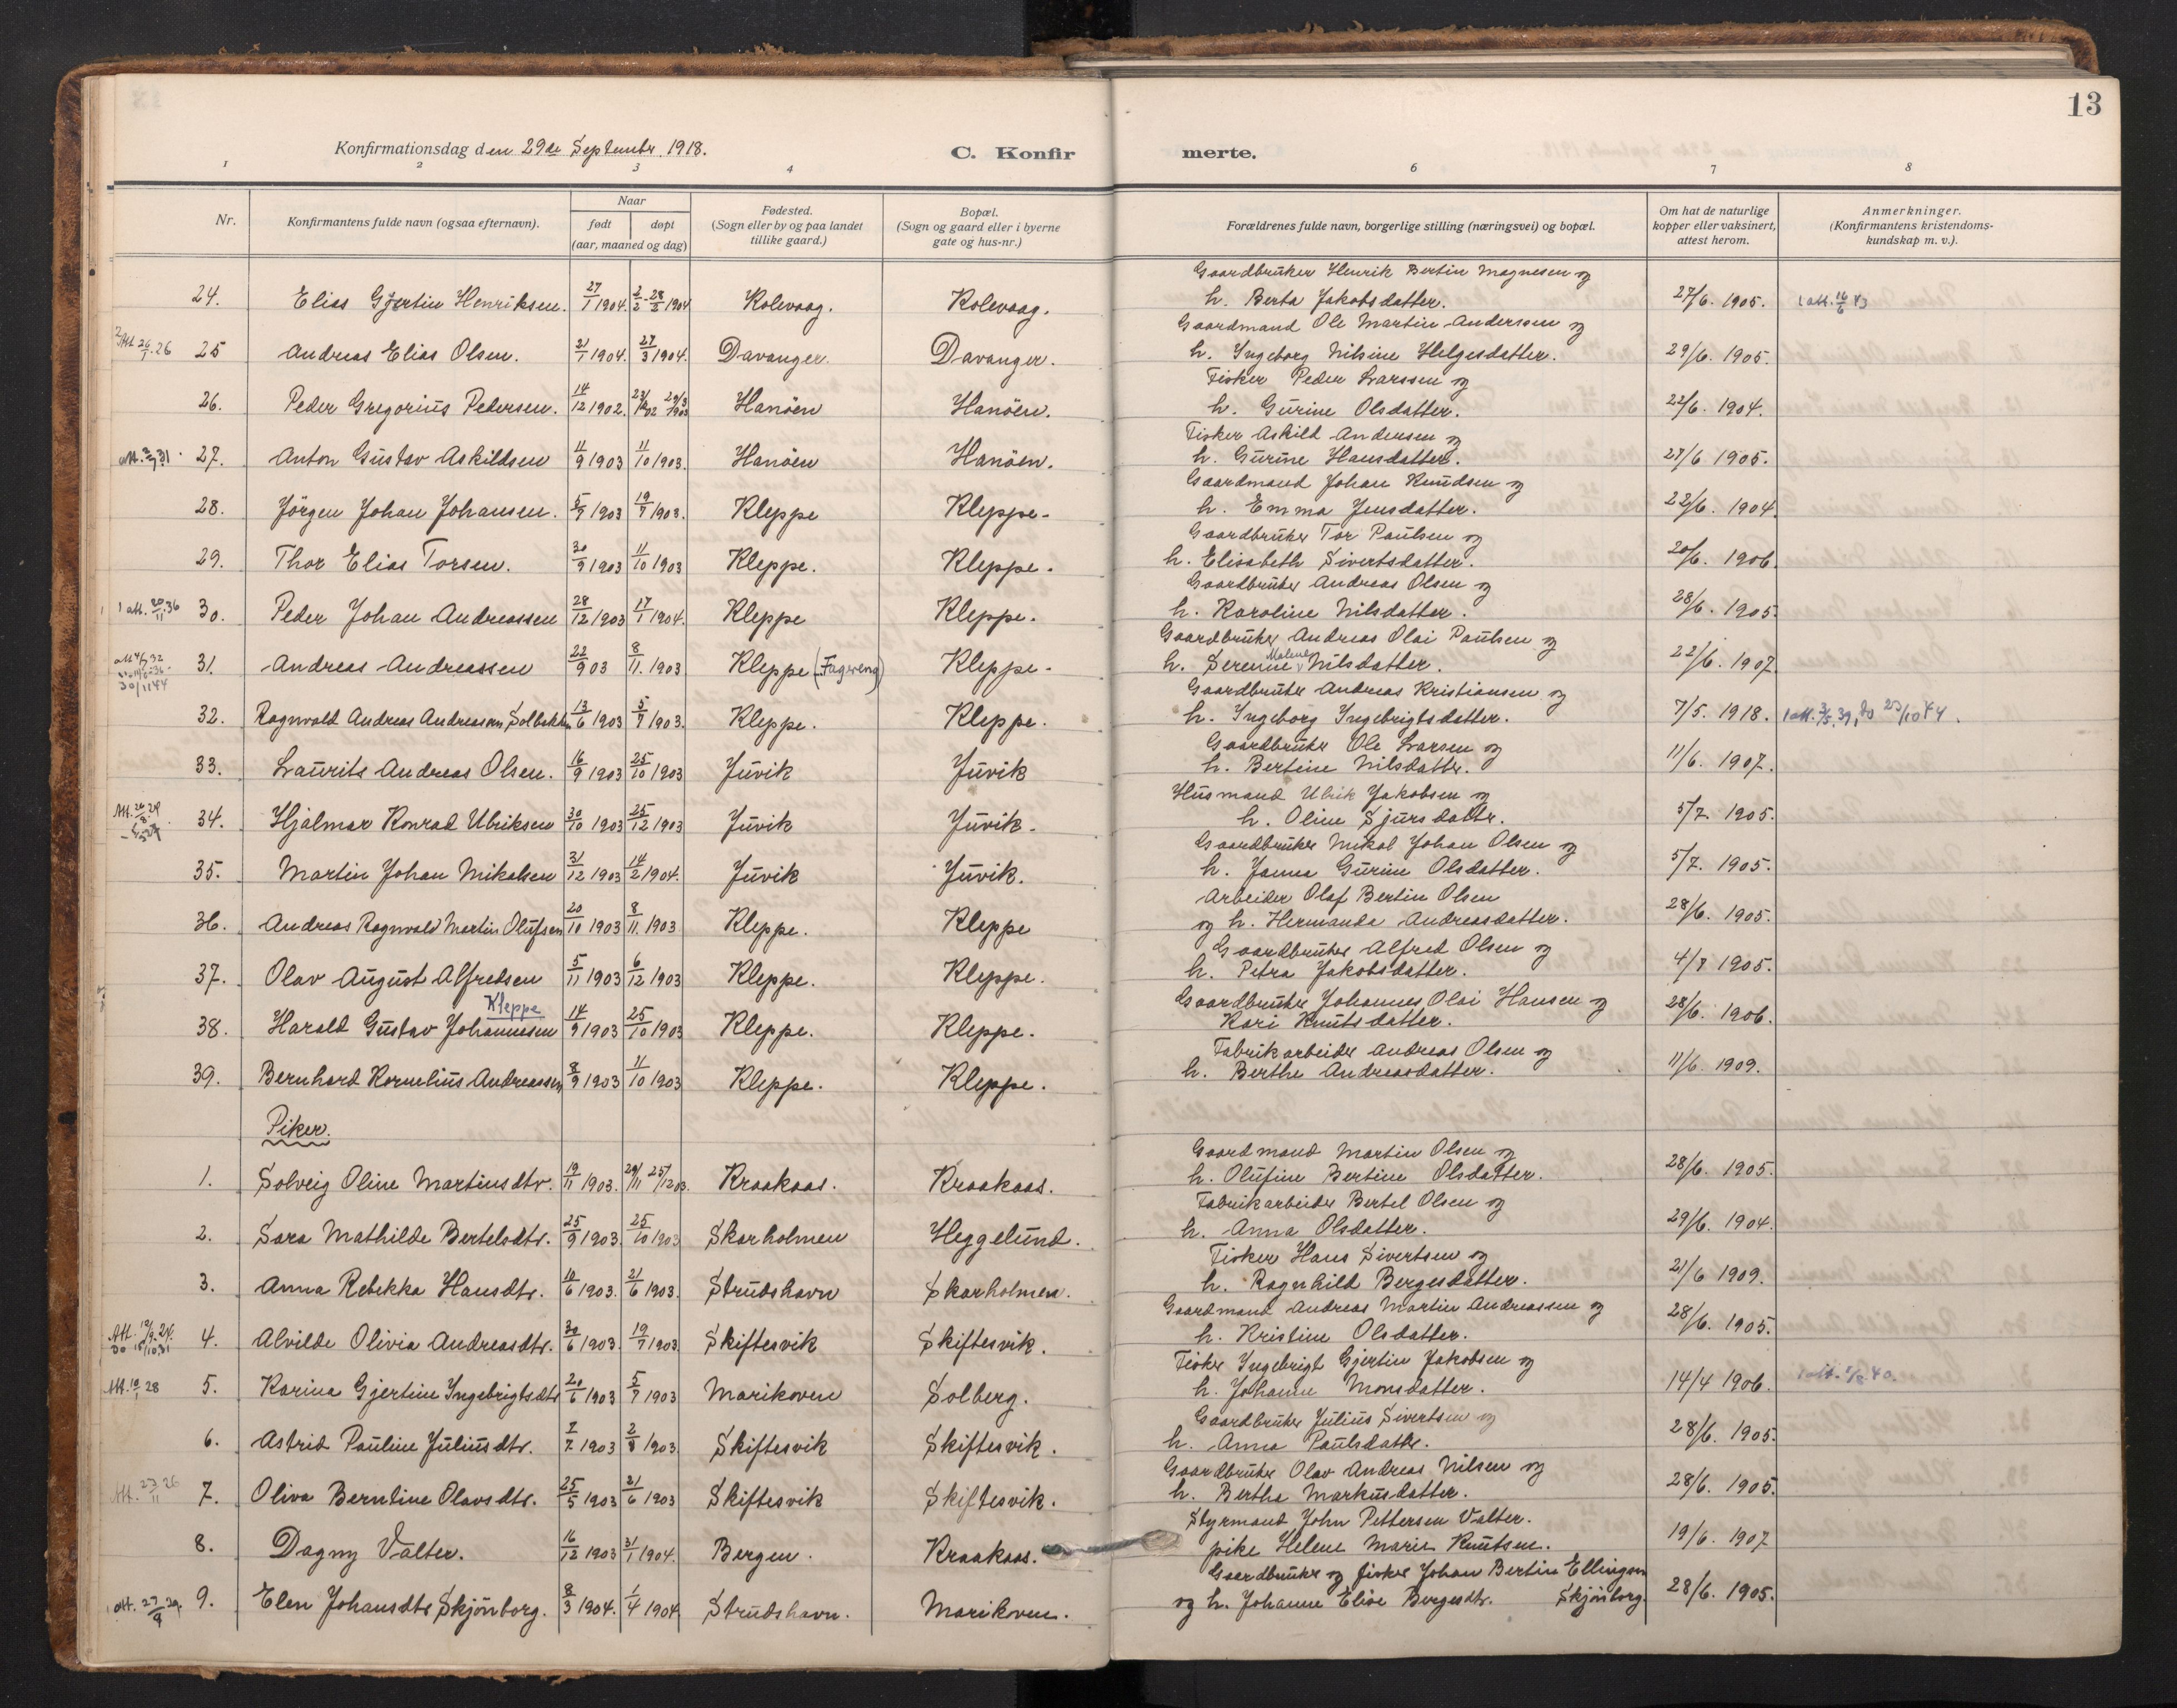 13
Konfirmationsdag den 29de Septembr. 1918.
C. Konfirmerte.
1 2 3 4 6 7 8
Nr.
Konfirmantens fulde navn (ogsaa efternavn).
Naar
født døpt
(aar, maaned og dag)
Fødested.
(Sogn eller by og paa landet
tillike gaard.)
Bopæl.
(Sogn og gaard eller i byerne
gate og hus-nr.)
Forældrenes fulde navn, borgerlige stilling (næringsvei) og bopæl.
Om hat de naturlige
kopper eller vaksinert,
attest herom.
Anmerkninger.
(Konfirmantens kristendoms-
kundskap m. v.).
Gaardbruker Henrik Bertin Magnesen og
24. Elias Gjertin Henriksen. 27/1 1904. 2/2 - 28/2 1904 Kolevaag. Kolevaag. h. Berta Jakobsdatter. 27/6. 1905. 1 att. 16/6 43
Gaardmand Ole Martin Anderssen og
26/1 26 25 Andreas Elias Olsen. 21/1 1904. 27/3 1904. Davanger. Davanger. h. Ingeborg Nilsine Helgesdatter. 29/6. 1905.
Fisker Peder Larssen og
26. Peder Gregorius Pedersen. 14/12 1902. 29/3 1903 Hanöen Hanöen. h. Gurine Olsdatter. 22/6. 1904.
Fisker Askild Andersen og
att. 31. 27. Anton Gustav Askildsen 11/9 1903 11/10 1903. Hanöen Hanöen. h. Gurine Hansdatter. 27/6 1905.
Gaardmand Johan Knudsen og
28. Jörgen Johan Johansen. 5/7 1903 19/7 1903. Kleppe Kleppe. h. Emma Jensdatter. 22/6. 1904.
Gaardbruker Tor Paulsen og
29. Thor Elias Torsen. 30/9 1903 11/10 1903 Kleppe. Kleppe. h. Elisabeth Sivertsdatter. 20/6. 1906.
Gaardbruker Andreas Olsen og
1 att. 20/11 36 30. Peder Johan Andreassen 28/12 1903 17/1 1904. Kleppe Kleppe. h. Karoline Nilsdatter. 28/6. 1905.
Gaardbruker Andreas Olai Paulsen og
30/11 44 31. Andreas Andreassen 22/9 03 8/11. 1903 Kleppe (Fagereng) Kleppe. h. Serenne Malene Nilsdatter. 22/6. 1907.
Gaardbruker Andreas Kristiansen og
32. Ragnvald Andreas Andreassen, Solbakken 13/6 1903 5/7 1903. Kleppe. Kleppe. h. Ingeborg Ingebrigtsdatter. 7/5. 1918. 1 att. 3/5. 39, do 23/10 44.
Gaardbruker Ole Larsen og
33. Laurits Andreas Olsen. 16/9 1903 25/10 1903 Juvik Juvik h. Bertine Nilsdatter. 11/6. 1907.
Husmand Ulrik Jakobsen og
34. Hjalmar Konrad Ulriksen 30/10 1903 25/12 1903 Juvik Juvik. h. Oline Sjursdatter. 5/7. 1905.
Gaardbruker Nikol Johan Olsen og
35. Martin Johan Nikolsen 31/12 1903 14/2 1904. Juvik Juvik. h. Janna Gurine Olsdatter. 5/7. 1905.
Arbeider Olaf Bertin Olsen
36. Andreas Ragnvald Martin Olufsen 20/10 1903 8/11. 1903 Kleppe. Kleppe og h. Hermanda Andreasdatter. 28/6. 1905.
Gaardbruker Alfred Olsen og
37. Olav August Alfredsen 5/11 1903 6/12 1903 Kleppe. Kleppe. h. Petra Jakobsdatter. 4/7 1905.
Kleppe
Gaardbruker Johannes Olai Hansen og
38. Harald Gustav Johannesen 14/9 1903 25/10 1903 Kleppe. Kleppe. Kari Knutsdatter. 28/6. 1906.
Fabrikarbeider Andreas Olsen og
39. Bernhard Kornelius Andreassen 8/9 1903 11/10 1903 Kleppe. Kleppe. h. Berthe Andreasdatter. 11/6. 1909.
Piker.
Gaardmand Martin Olsen og
1. Solveig Oline Martinsdtr. 19/11 1903. 29/11 25/12 03. Kraakaas. Kraakaas. h. Olufine Bertine Olsdatter. 28/6. 1905.
Fabrikarbeider Bertel Olsen og
2. Sara Mathilde Bertelsdtr. 25/9 1903. 25/10 1903 Skarholmen Heggelund. h. Anna Olsdatter. 29/6. 1904.
Fisker Hans Sivertsen og
3. Anna Rebekka Hansdtr. 10/6 1903. 21/6 1903. Strudshavn Skarholmen. h. Ragnhild Bergesdatter. 21/6 1909.
Gaardmand Andreas Martin Andreassen og
4. Alvilde Olivia Andreasdtr. 30/6 1903. 19/7 1903 Skiftesvik Skiftesvik. h. Kristine Olsdatter. 28/6. 1905.
Fisker Ingebrigt Gjertin Jakobsen og
Att. 10/1 28 5. Karina Gjertine Ingebrigtsdtr 20/6 1903 5/7 1903 Marikoven Solberg. h. Johanne Monsdatter. 14/4 1906.
Gaardbruker Julius Sivertsen og
6. Astrid Pauline Juliusdtr. 7/7 1903 2/8 1903 Skiftesvik Skiftesvik. h. Anna Paulsdatter. 28/6. 1905.
Gaardbruker Olav Andreas Nilsen og
Att. 23/11 26 7. Oliva Berntine Olavsdtr. 25/5 1903 21/6 1903 Skiftesvik Skiftesvik. h. Bertha Markusdatter. 28/6. 1905.
Styrmand John Pettersen Valter.
8. Dagny Valter. 16/12 1903 31/1 1904. Bergen. Kraakaas. pike Helene Marie Knutsen. 19/6. 1907
Gaardbruker og fisker Johan Bertin Ellingsen
1 att. 27/9 29. 9. Elen Johansdtr Skjönborg. 8/3 1904. 1/4 1904 Strudshavn. Marikoven. og h. Johanne Elise Bergesdtr. Skjönborg. 28/6. 1905.